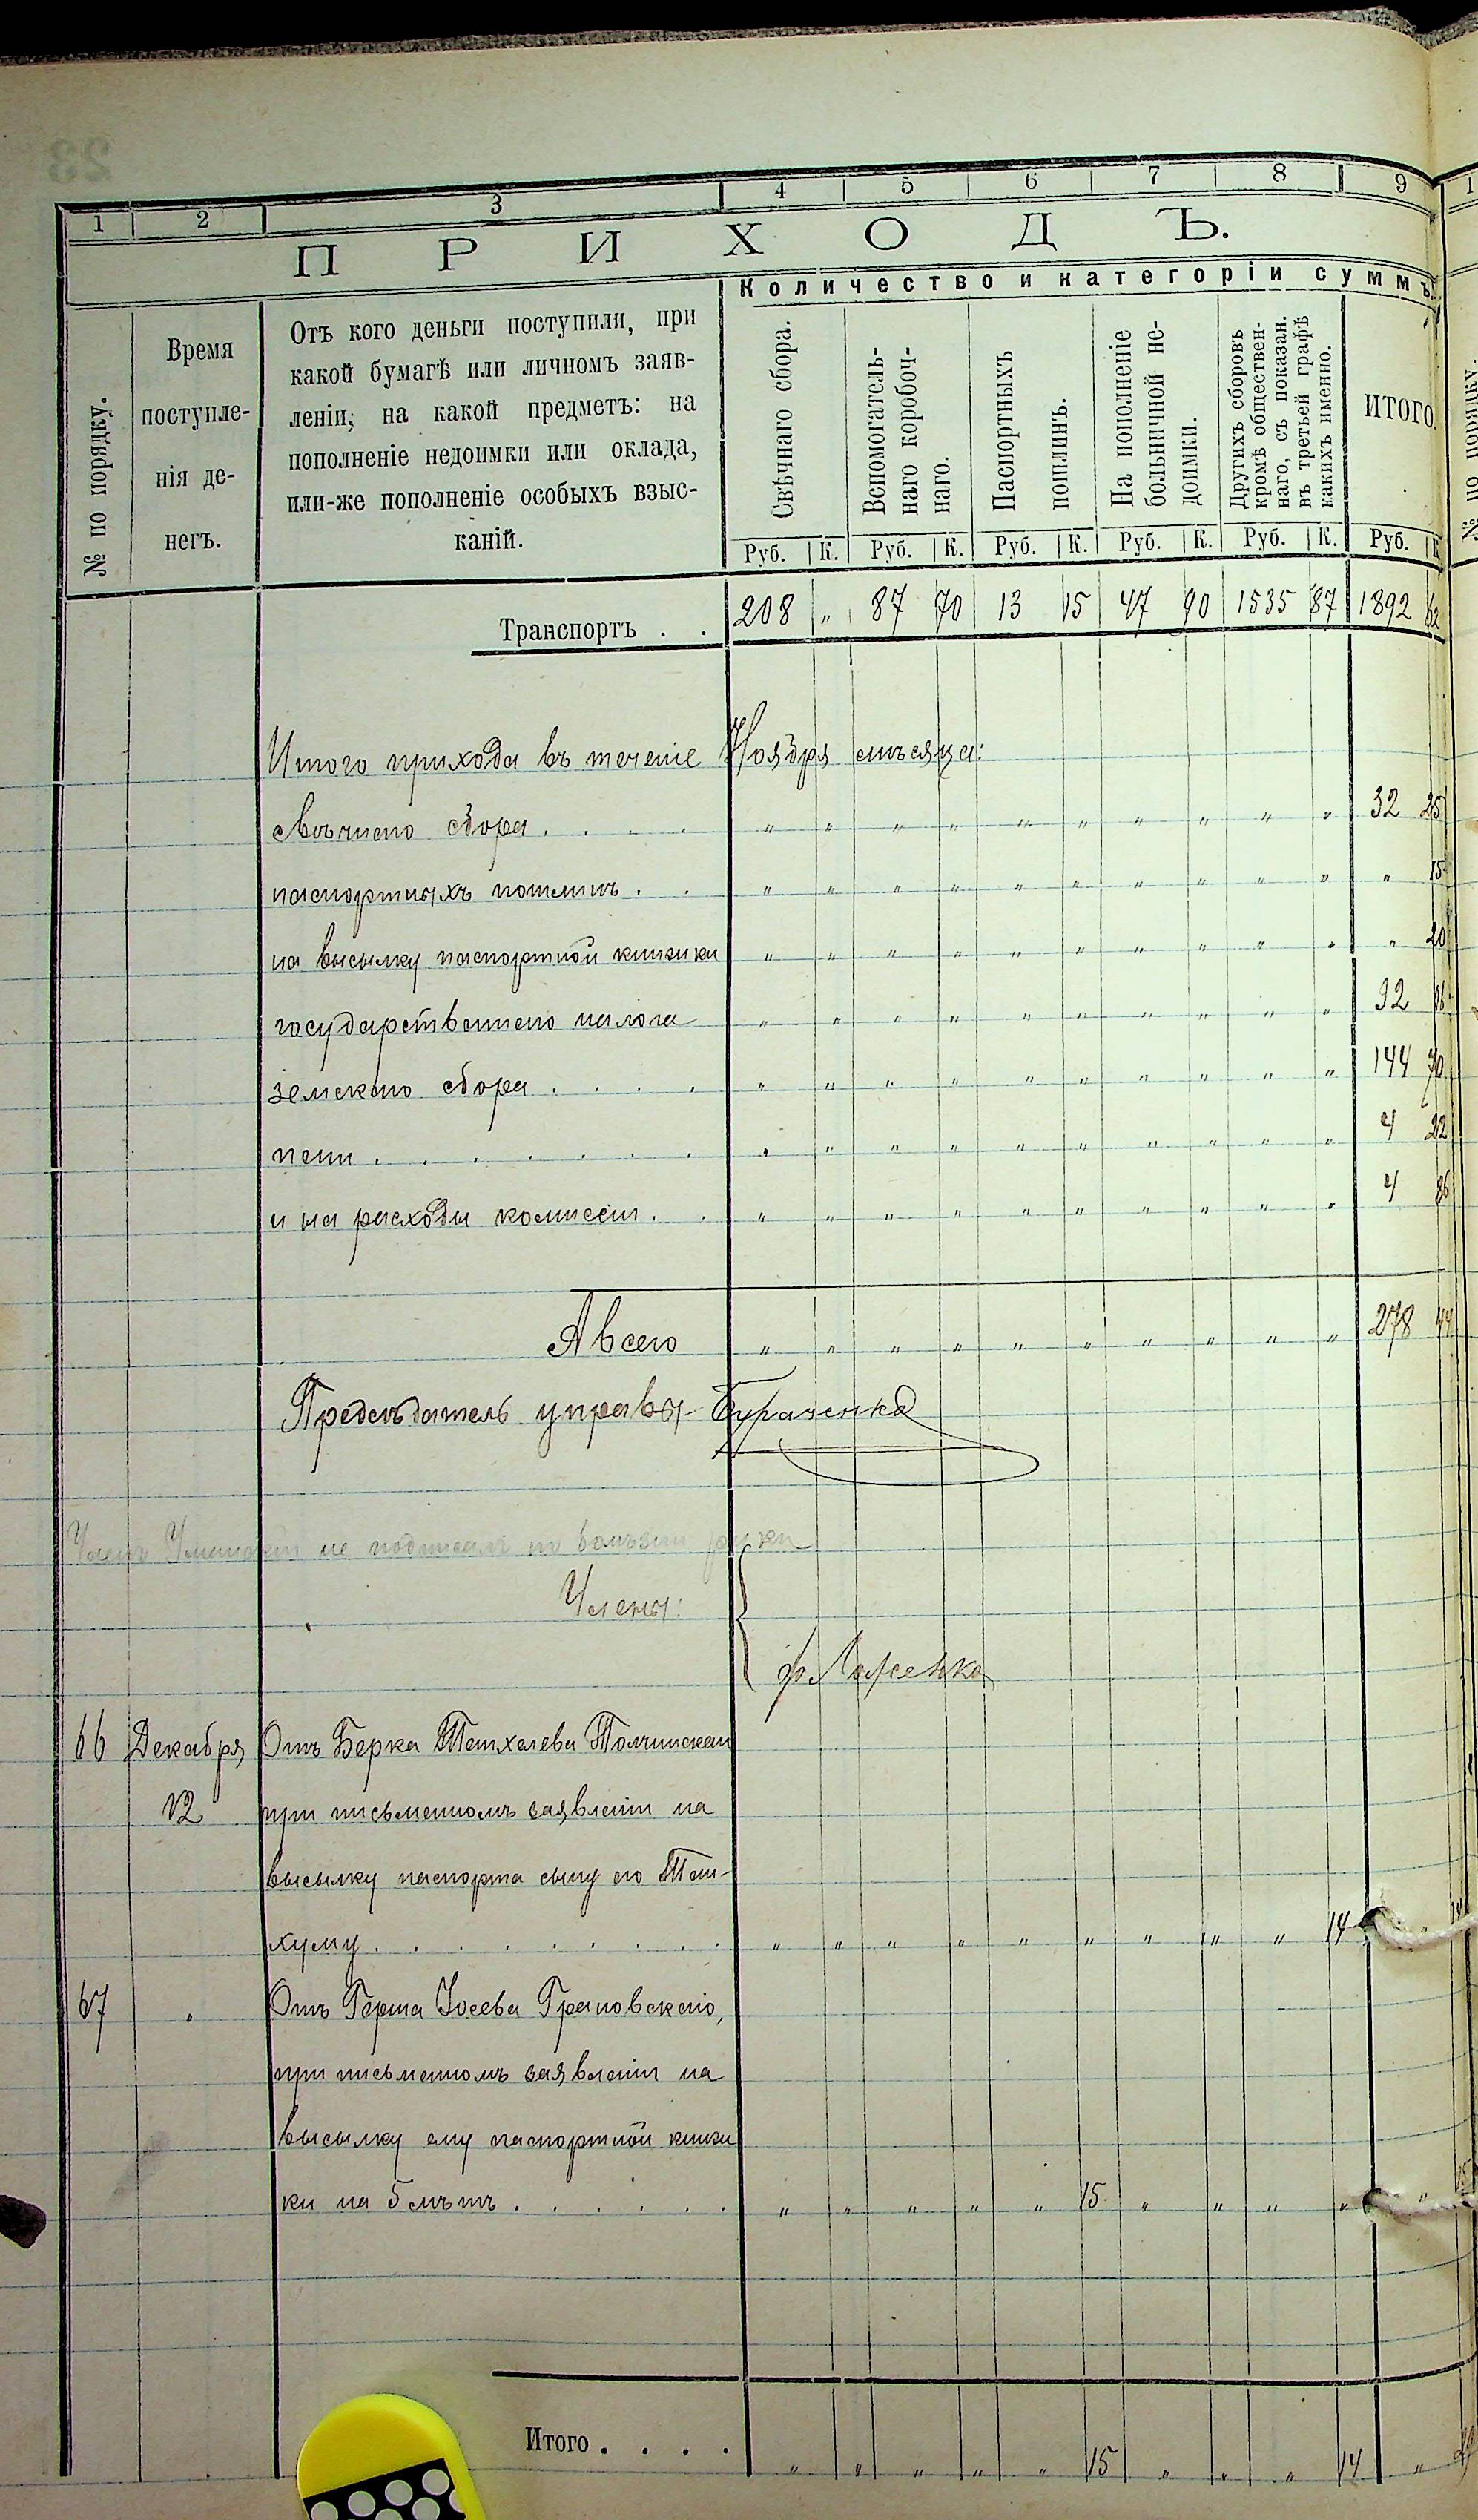 23
1 2 3 4 5 6 7 8 9 1
ПРИХОДЪ.
Количество и категоріи суммъ.
№ по порядку.
Время
поступле-
нія де-
негъ.
Отъ кого деньги поступили, при
какой бумагѣ или личномъ заяв-
леніи; на какой предметъ: на
пополненіе недоимки или оклада,
или-же пополненіе особыхъ взыс-
каній.
Свѣчнаго сбора.
Вспомогатель-
наго коробоч-
наго.
Паспортныхъ
пошлинъ.
На пополненіе
больничной не-
доимки.
Другихъ сборовъ
кромѣ обществен-
наго, съ показан.
въ третьей графѣ
какихъ именно.
ИТОГО.
№ по порядку.
Руб. К. Руб. К. Руб. К. Руб. К. Руб. К. Руб. К
Транспортъ . . 208 „ 87 70 13 15 47 90 1535 87 1892 62
Итого прихода въ теченіе Ноября мѣсяца:
свѣчнаго сбора . . . . „ „ „ „ „ „ „ „ „ „ 32 25
паспортныхъ пошлинъ . . „ „ „ „ „ „ „ „ „ „ „ 15
на высылку паспортной книжки „ „ „ „ „ „ „ „ „ „ „ 20
государственнаго налога „ „ „ „ „ „ „ „ „ „ 92
земскаго сбора . . . . „ „ „ „ „ „ „ „ „ „ 144 70
пени . . . . . . . „ „ „ „ „ „ „ „ „ „ 4 22
и на расходы комиссіи . . „ „ „ „ „ „ „ „ „ „ 4 86
А всего „ „ „ „ „ „ „ „ „ „ 278 44
Предсѣдатель управы Бураченко
Членъ Уманскій не подписалъ по болѣзни руки
Члены:
66 Декабря Отъ Берка
12 при письменномъ заявленіи на
высылку паспорта сыну его Тан-
хуму . . . . . . . . „ „ „ „ „ „ „ „ „ 14 „ 14
67 „ Отъ Герша Іосева Грановскаго,
при письменномъ заявленіи на
высылку ему паспортной книж
ки на 5 лѣтъ . . . . . . „ „ „ „ „ 15 „ „ „ „ „ 15
Итого . . . . „ „ „ „ „ 15 „ „ „ 14 „ 29